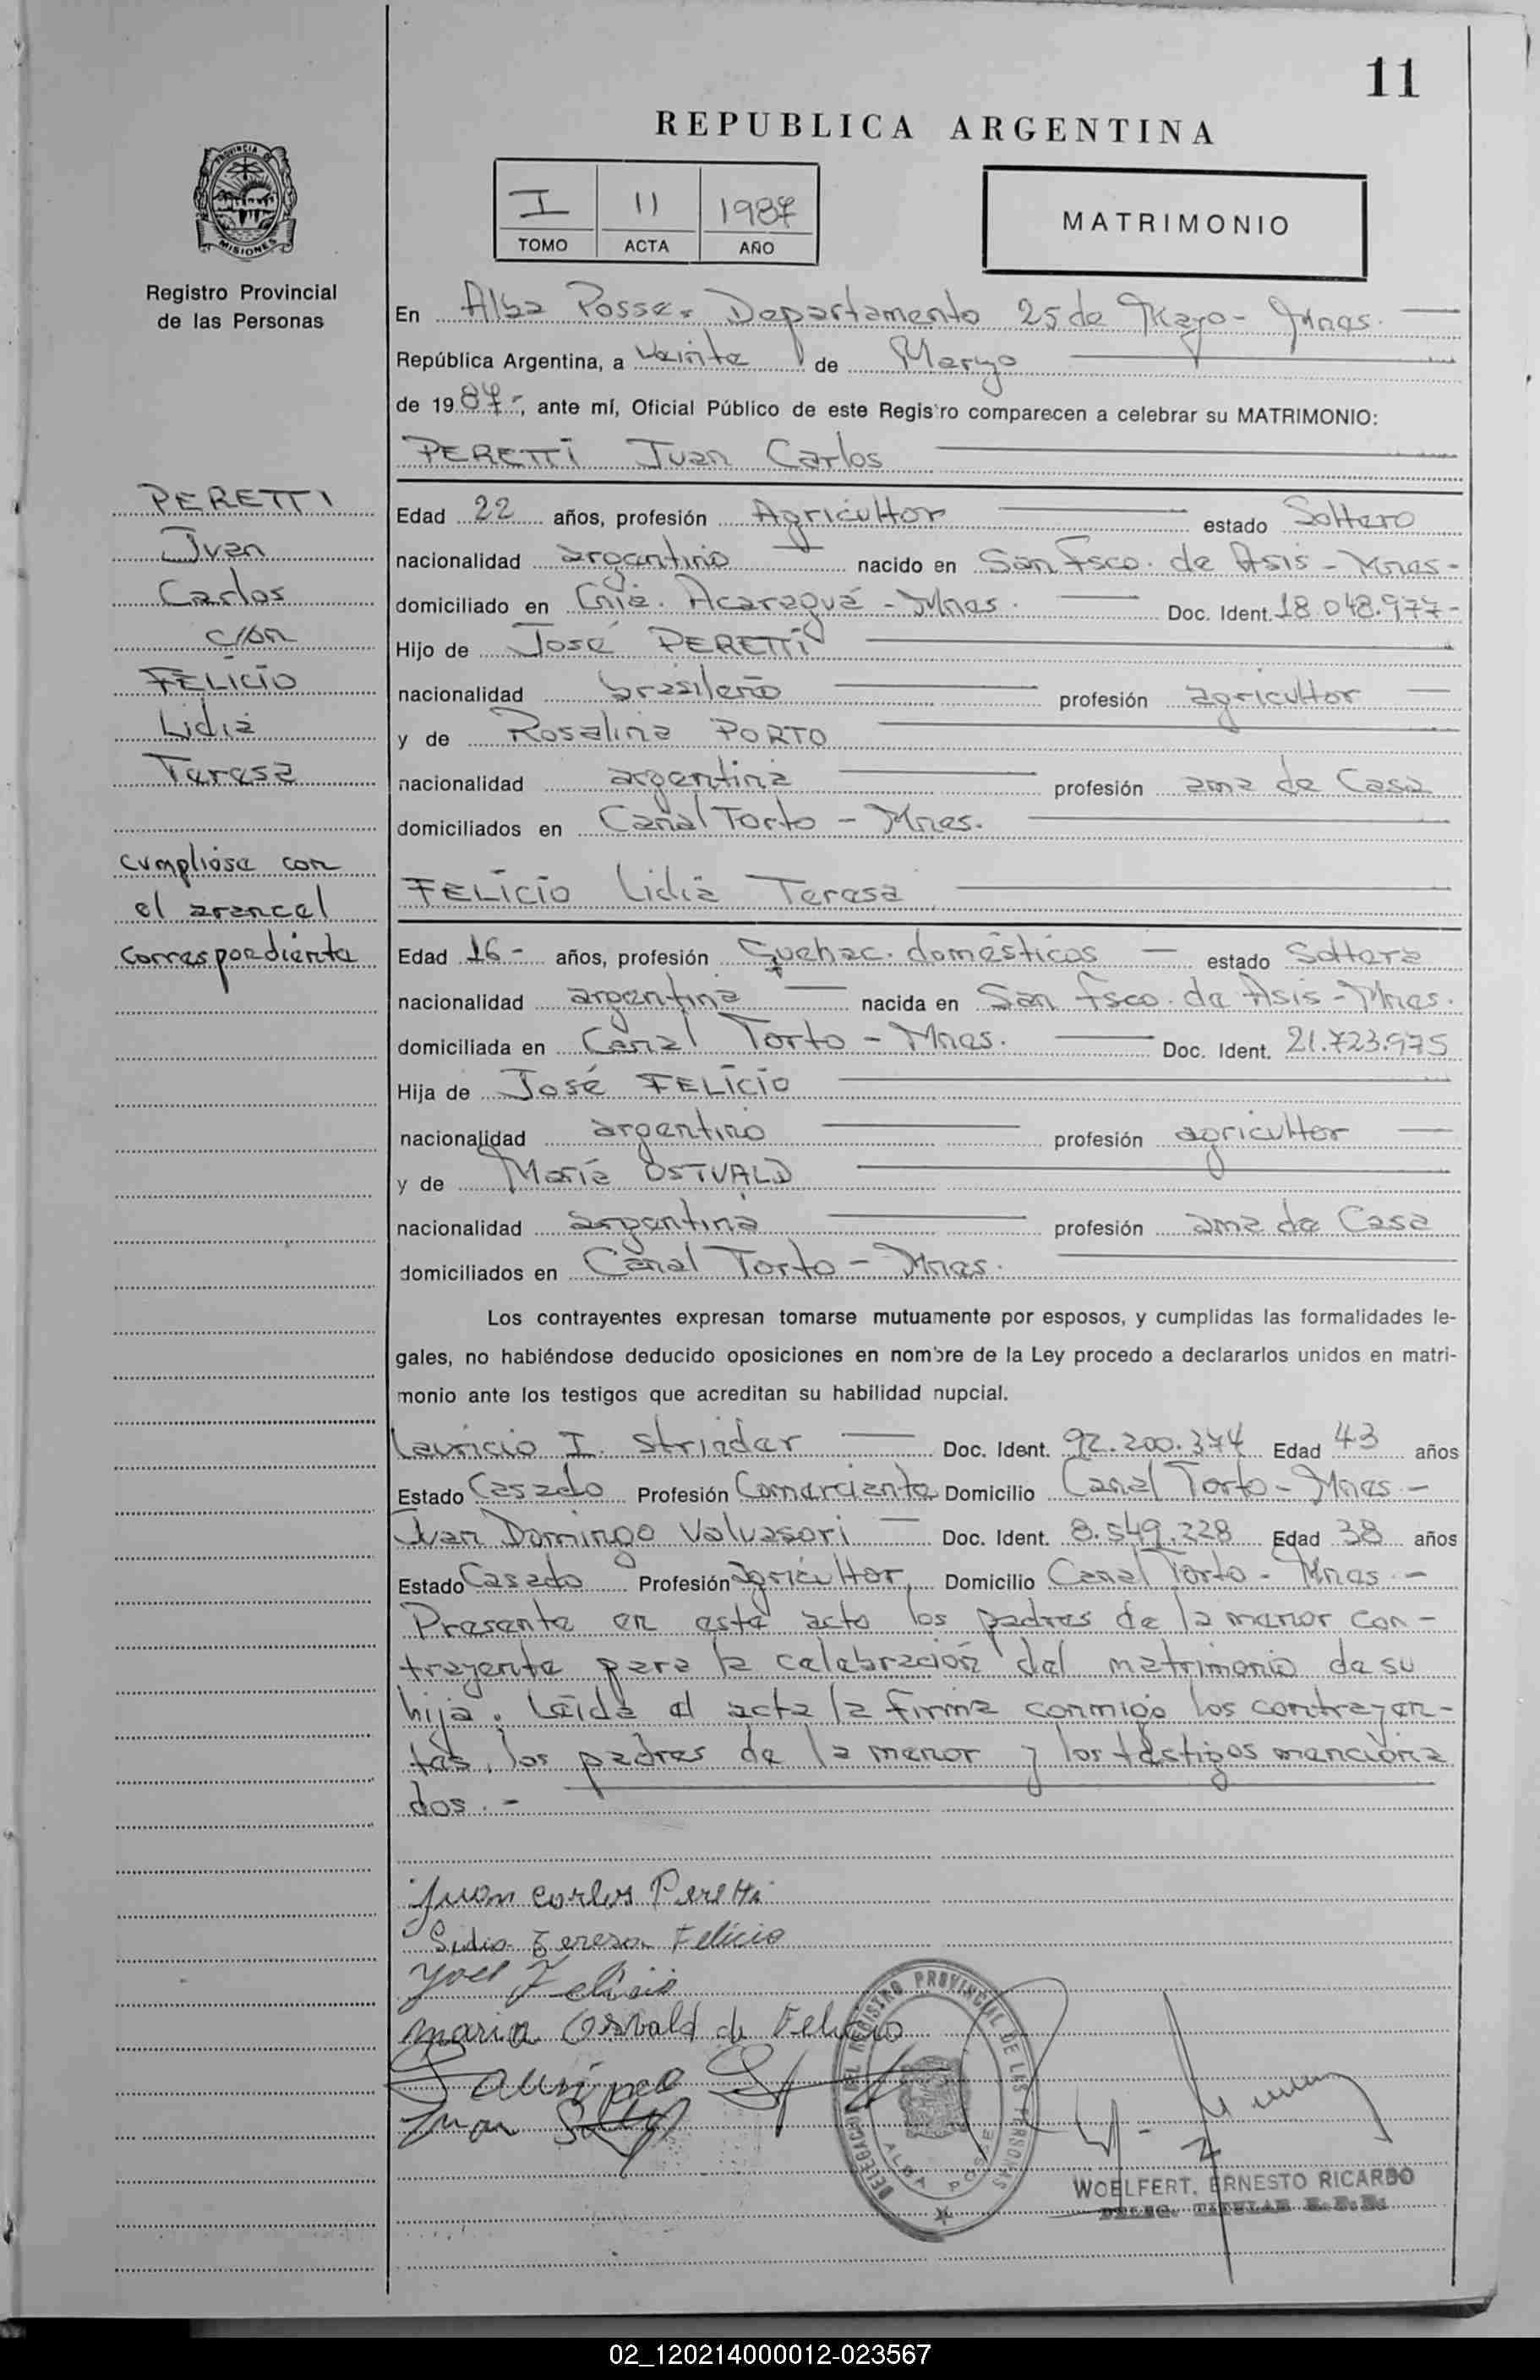 11
REPUBLICA ARGENTINA
I 11 1987
TOMO ACTA AÑO
MATRIMONIO
PROVINCIA DE
MISIONES
Registro Provincial
de las Personas
En Alba Posse. Departamento 25 de Mayo - Mnes.
República Argentina, a veinte de Marzo
de 1987-, ante mí, Oficial Público de este Registro comparecen a celebrar su MATRIMONIO:
PERETTI Juan Carlos
PERETTI
Juan
Carlos
c/ón
FELICIO
Lidia
Teresa
cumplióse con
el arancel
correspondiente
Edad 22 años, profesión Agricultor estado Soltero
nacionalidad argentino nacido en San Fsco. de Asis - Mnes-
domiciliado en Cnia. Acaraguá - Mnes. Doc. Ident. 18.048.977-
Hijo de José PERETTI
nacionalidad brasileño profesión agricultor
y de Rosalina PORTO
nacionalidad argentina profesión ama de Casa
domiciliados en Canal Torto - Mnes.
FELICIO Lidia Teresa
Edad 16- años, profesión Quehac. domésticos estado Soltera
nacionalidad argentina nacida en San Fsco. de Asis - Mnes.
domiciliada en Canal Torto - Mnes. Doc. Ident. 21.723.975
Hija de José FELICIO
nacionalidad argentino profesión agricultor
y de María OSTVALD
nacionalidad argentina profesión ama de Casa
domiciliados en Canal Torto - Mnes.
Los contrayentes expresan tomarse mutuamente por esposos, y cumplidas las formalidades le-
gales, no habiéndose deducido oposiciones en nombre de la Ley procedo a declararlos unidos en matri-
monio ante los testigos que acreditan su habilidad nupcial.
Lauricio I. Strieder Doc. Ident. 92.200.374 Edad 43 años
Estado Casado Profesión Comerciante Domicilio Canal Torto - Mnes.-
Juan Domingo Valvasori Doc. Ident. 8.549.228 Edad 38 años
Estado Casado Profesión agricultor, Domicilio Canal Torto - Mnes.-
Presente en este acto los padres de la menor con-
trayente para la celebración del matrimonio de su
hija. Leída el acta la firma conmigo los contrayen-
tes, los padres de la menor y los testigos menciona
dos.-
Juan Carlos Peretti
Lidia Teresa Felicio
José Felicio
maria Ostvald de Felicio
Juan
DELEGACION DEL REGISTRO PROVINCIAL DE LAS PERSONAS
ALBA POSSE
WOELFERT, ERNESTO RICARDO
DELEG. TITULAR
02_120214000012-023567